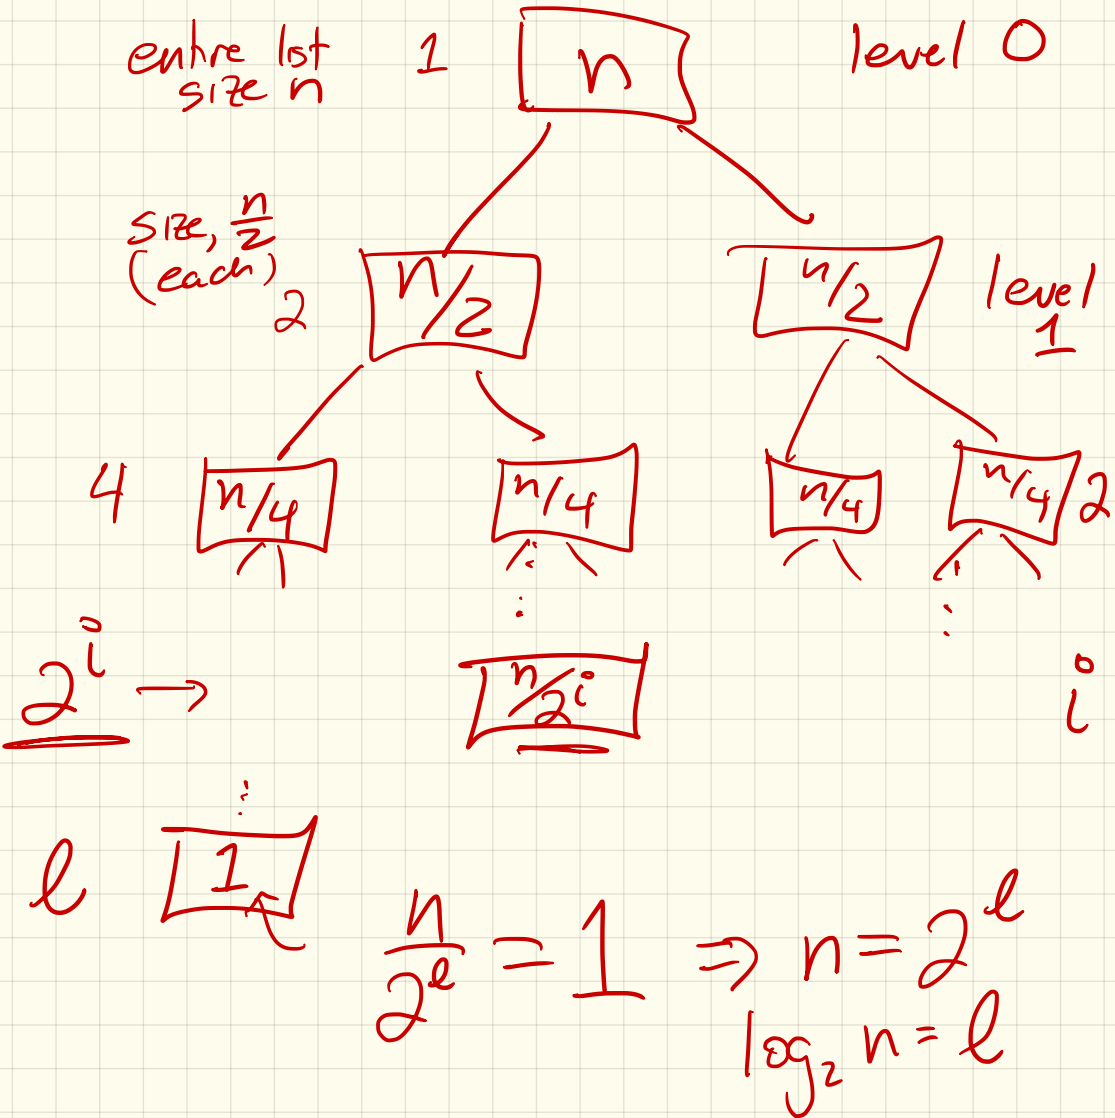 entire list 1 n level 0
size n
size, n/2
(each)
2 n/2 n/2 level
1
4 n/4 n/4 n/4 n/4 2
2^i → n/2^i i
l 1
n/2^l = 1 ⇒ n = 2^l
log₂ n = l